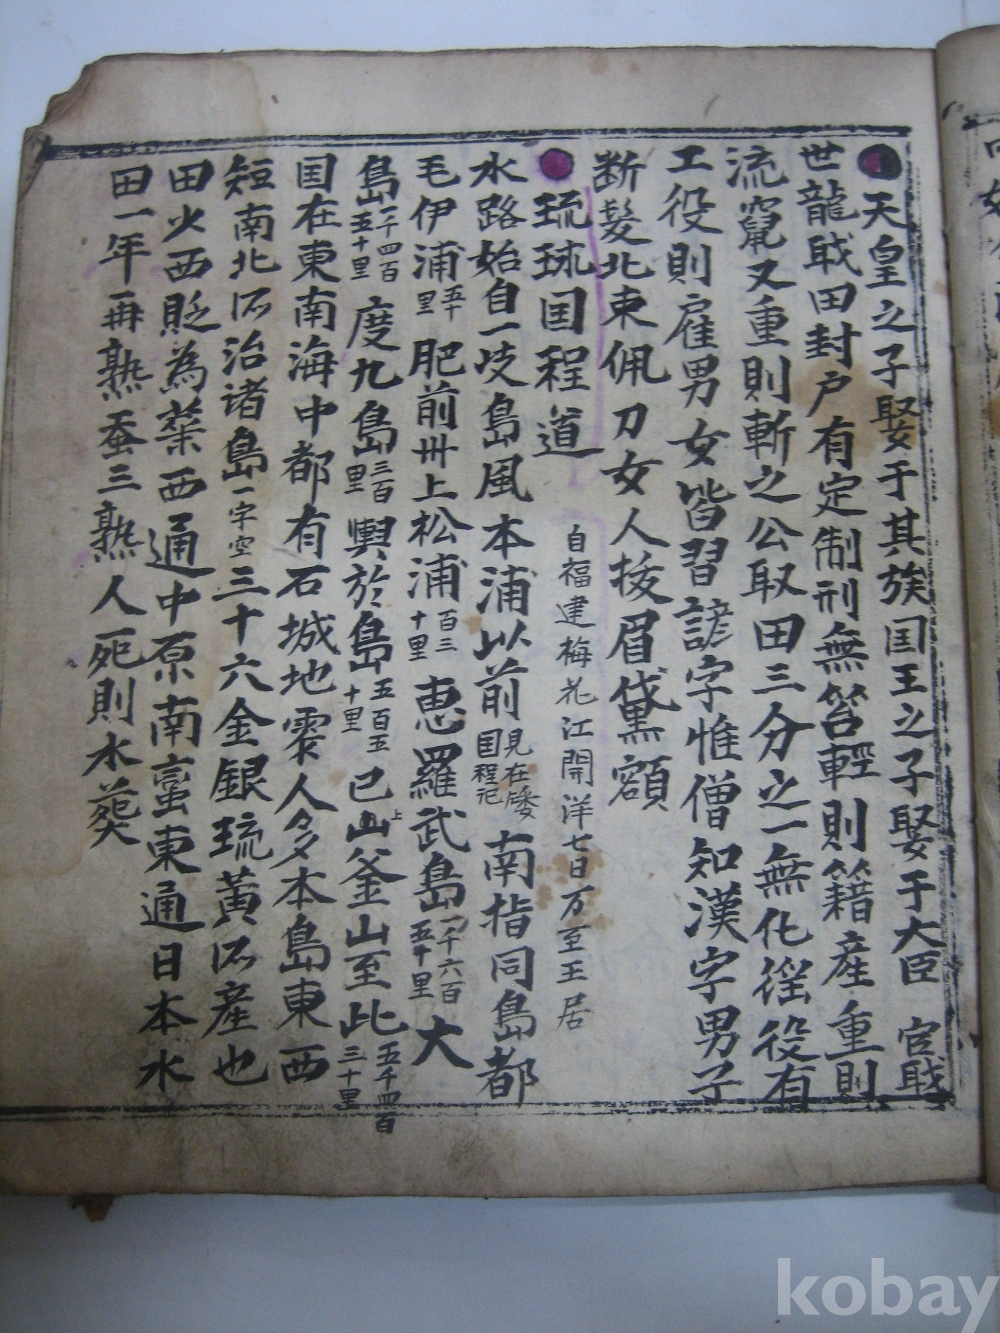 天皇之子娶于其族国王之子娶于大臣 官戝
世龍戝田封户有定制刑無笞輕則籍産重則
流竄又重則斬之公取田三分之一無化徭役有
工役則雇男女皆習諺字惟僧知漢字男子
断髮北東佩刀女人援眉黛額
琉球国程道 自福建梅花江開洋七日万至王居
水路始自一岐島風本浦以前 見在矮国程记 南指同島都
毛伊浦 五十里 肥前州上松浦 百三十里 惠羅武島 一千六百五十里 大
島 一千四百五十里 度九島 三百里 輿於島 五百五十里 已上山釜山至此 五千四百三十里
国在東南海中都有石城地 人多本島東西
短南北所治诸島 一字空 三十六金銀琉黄所產也
田火西貶為業西通中原南蛮東通日本水
田一年再熟蚕三熟人死則水葵
kobay